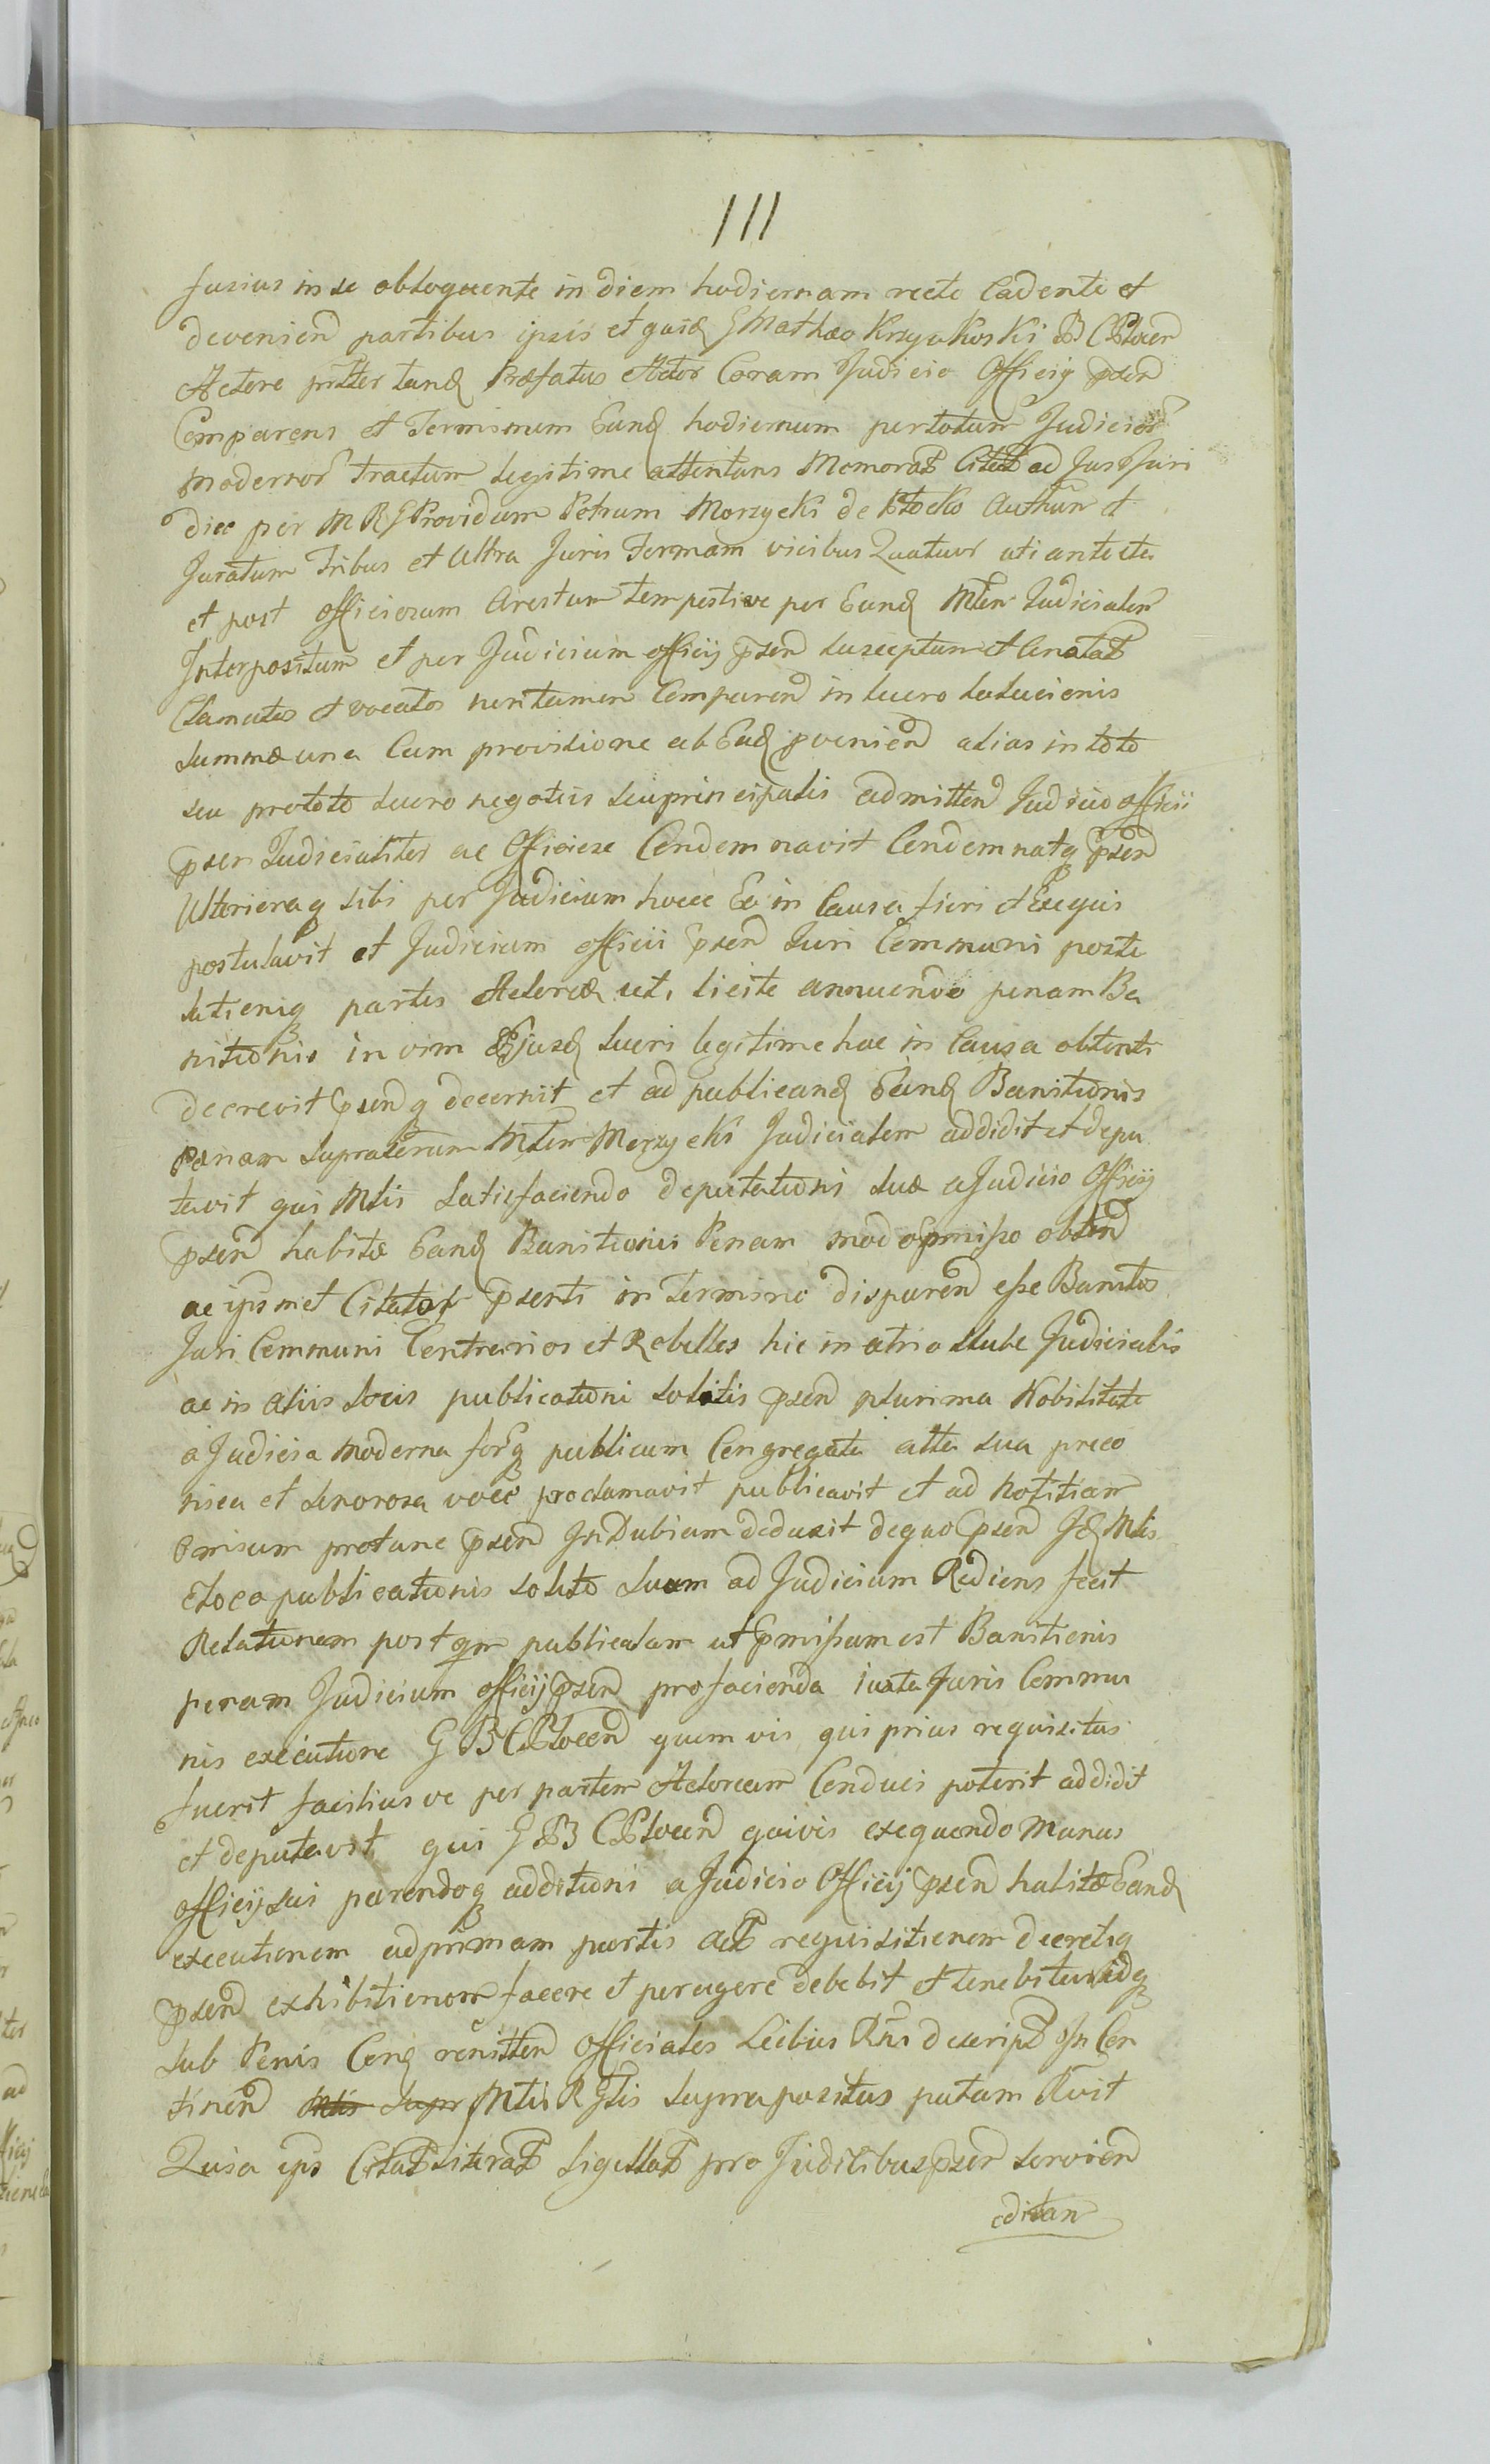 111
fusius in se obloquente in diem hodiernam recte Cadente et
devenien partibus ipsis et quidem G Mathæo Krzykoski B C Plocen
Actore pntter tand Præfatus Actor Coram Judicio Officij psen
Comparens et Terminum Eund hodiernum pertotum Judicior
modernor tractum legitime attentans Memorat Citat ad Jus Juri
dice per M R G Providum Petrum Morzycki de Plocko Authen et
Juratum Tribus et Ultra Juris Formam vicibus Quatuor uti ante ita
et post Officiosum Arestum tempestive per Eund Mtem Judicialem
Interpositum et per Judicium officij psen susceptum et Anotat
Clamatos et vocatos nontamen Comparen in lucro solucionis
summæ una Cum provisione ab Ead pvenien alias in toto
seu prototo lucro negotiis seu principalis admitten Judicio officii
psen Judicialiter ac Officiose Condemnavit Condemnatq psen
Ulterioraq sibi per Judicium hocce Ea in Causa fieri et Exequi
postulavit et Judicium officii psen Juri Communi postu
lationiq partis Actoreæ uti licite annuendo penam Ba
nitionis in vim Ejusd lucri legitime hac in Causa obtenti
decrevit psenq decernit et ad publicand Eand Banitionis
Pænam supralerum Mtem Morzycki Judicialem addidit et depu
tavit qui Mtis satisfaciendo deputationi suæ a Judicio Officij
psen habitæ Eand Banitionis Penam modo pmisso obten
ac ipsmet Citator psenti in Termino disparen esse Banitos
Juri Communi Contrarios et Rebelles hic in atrio stubæ Judicialis
ac in aliis locis publicationi solitis psen plurima Nobilitate
a Judicia moderna forq publicum Congregata alta sua preco
nisea et sonorosa voce proclamavit publicavit et ad notitiam
Omnium protunc psen InDubiam deduxit dequo psen Id Mtis
eloco publicationis solito suam ad Judicium Rediens fecit
Relationem post qm publicatam ut pmissum est Banitionis
penam Judicium officij psen pro facienda iuxta Juris Commu
nis executione G B C Plocen quemvis qui prius requisitus
fuerit faciliusve per partem Actoream Conduci poterit addidit
et deputavit qui G B C Plocen quivis exequendo Munus
officij sui parendoq additioni a Judicio Officij psen habitæ Eand
executionem ad primam partis Act requisitionem decretiq
psen exhibitionem facere et peragere debebit et tenebitur idq
sub Penis Conq renitten Officiales Legibus Rni descript In Con
tinen Mtis Supr Mtis R Gtis suprapositus patam Rvit
Quia ips Citat Literat Sigillat pro Juditibus psen servien
editan